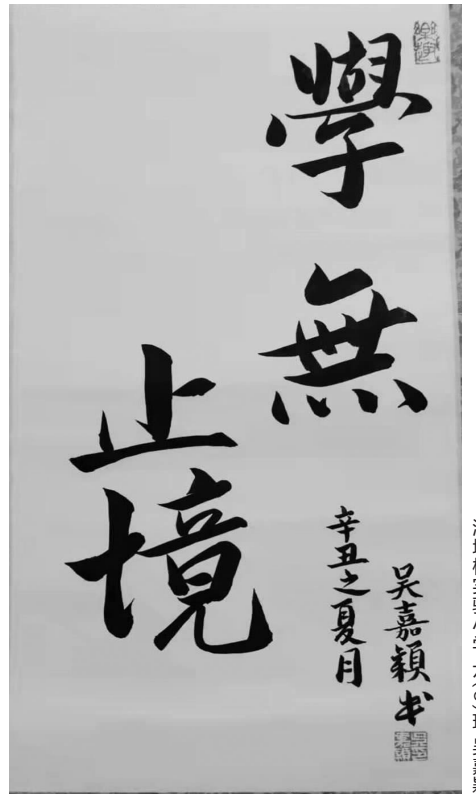 學無
止境
辛丑之夏月
吴嘉穎书